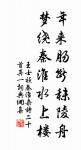 年来肠断秣陵舟
梦绕秦淮水上楼
王士祯秦淮杂诗二十
首其一词典网集